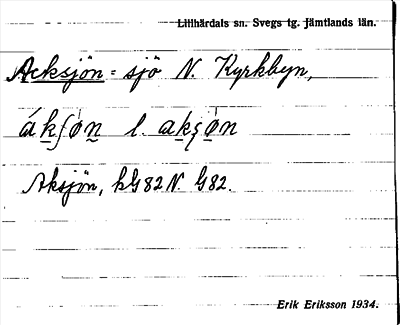 Lillhärdals sn. Svegs tg. Jämtlands län.
Acksjön = sjö N. Kyrkbyn,
l.
Aksjön, kG82 N. G82.
Erik Eriksson 1934.